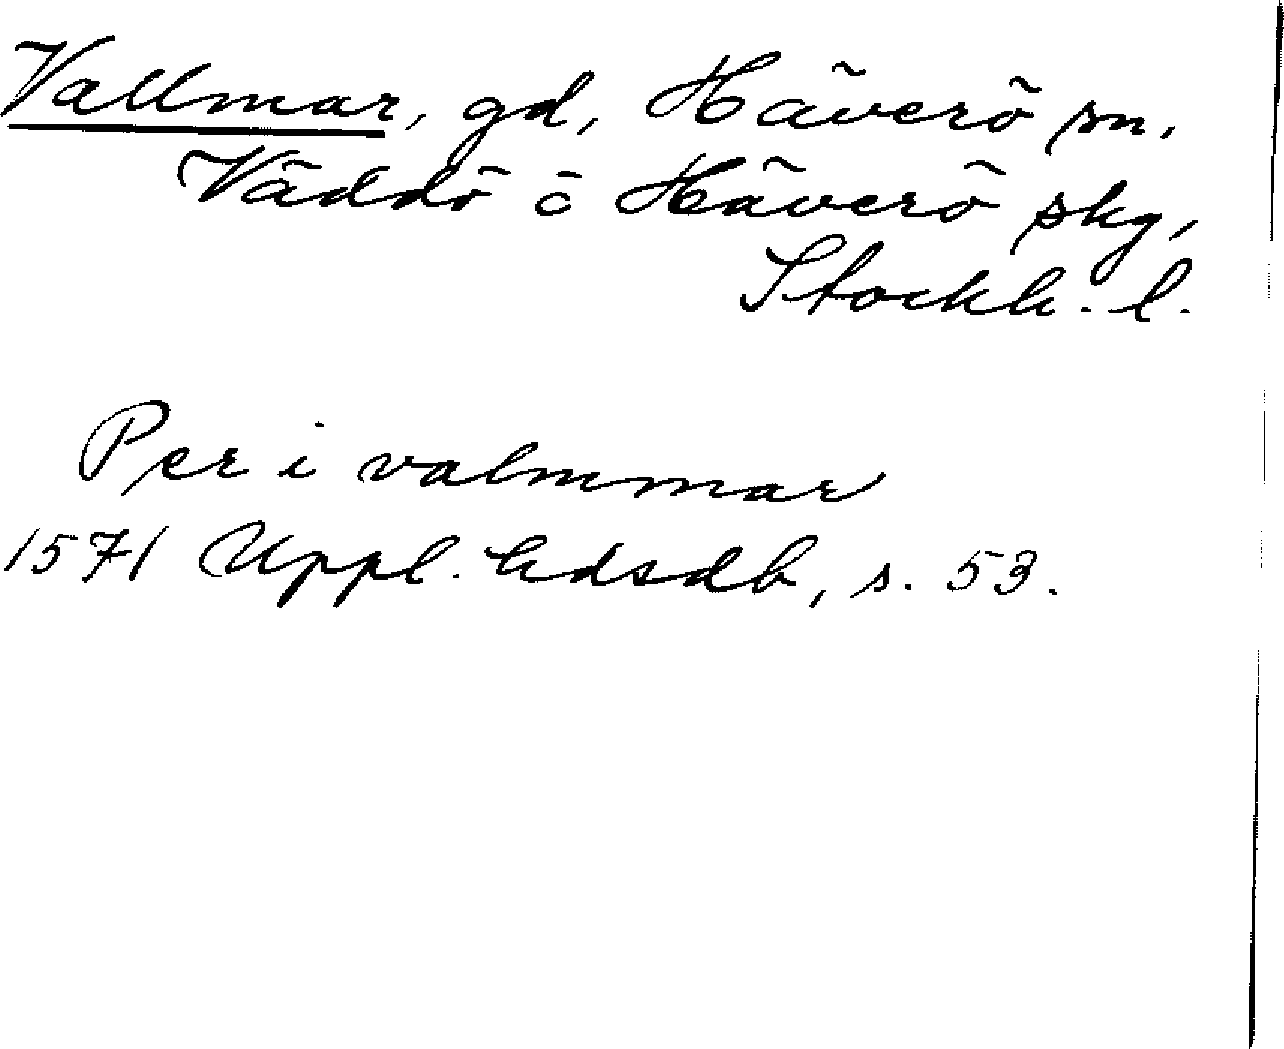 Vallmar, gd, Häverö sn,
Väddö o Häverö skg,
Stockh. l.
Per i valmmar
1571 Uppl. hdsdb, s. 53.